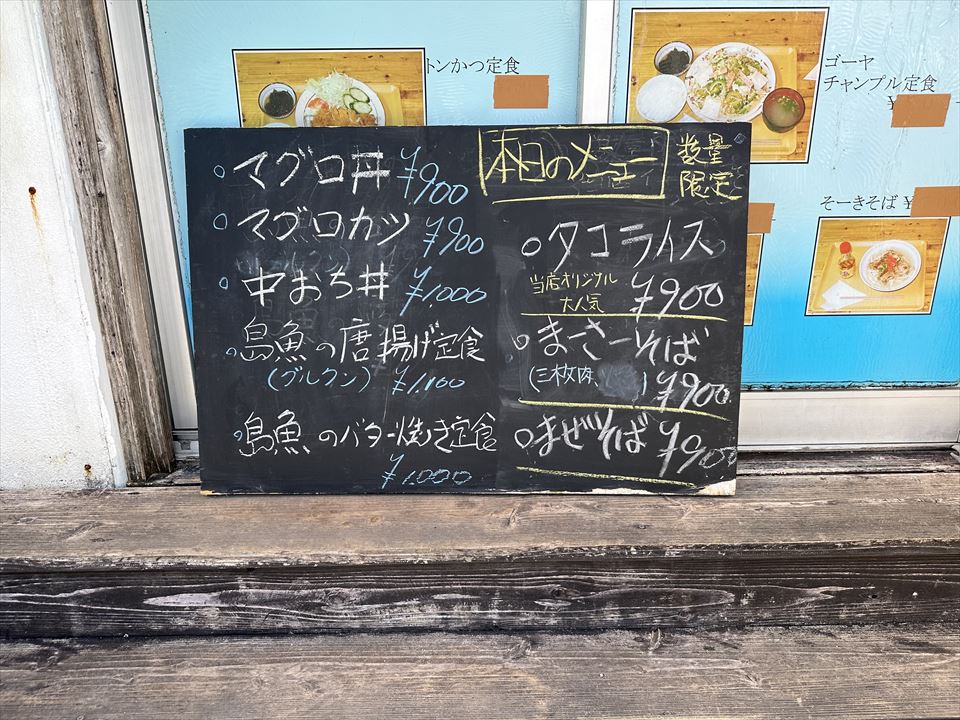 トンかつ定食
ゴーヤ
チャンプル定食
¥
そーきそば ¥
マグロ丼 ¥900
マグロカツ ¥900
中おち丼 ¥1,000
島魚の唐揚げ定食
(グルクン) ¥1,100
島魚のバター焼き定食
¥1,000
本日のメニュー
数量
限定
タコライス
当店オリジナル
大人気 ¥900
まーさーそば
(三枚肉、 ) ¥900
まぜそば ¥900